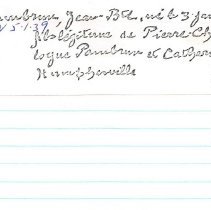 Pambrun, Jean-Bte, né le 3 jan
5-1-39
fils légitime de Pierre-Ch
logue Pambrun et Cather
Humpherville